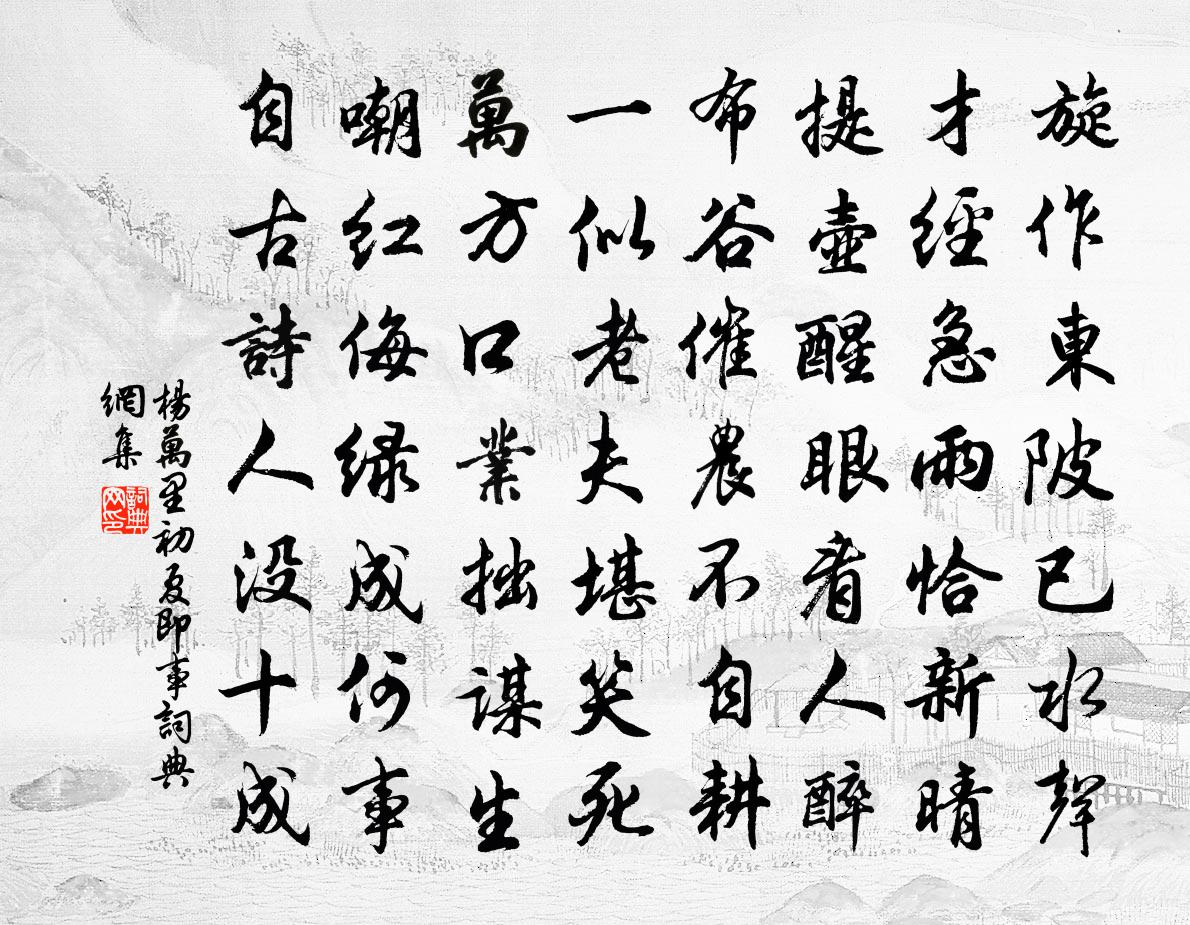 旋作東陂已水聲
才經急雨恰新晴
提壺醒眼看人醉
布谷催農不自耕
一似老夫堪笑死
萬方口業拙謀生
嘲紅侮绿成何事
自古詩人没十成
楊萬里初夏即事詞典
網集
詞典
网印